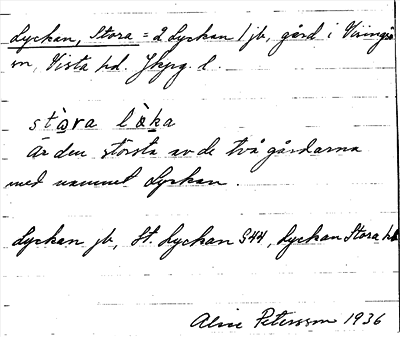 Lyckan, Stora = 2 Lyckan 1 jb, gård i Visingsö
sn, Vista hd. Jkpg. l.
stò̱ra lø̱̀ka
Är den största av de två gårdarna
med namnet Lyckan.
Lyckan jb, St. Lyckan S44, Lyckan Stora hb
Alice Petersson 1936